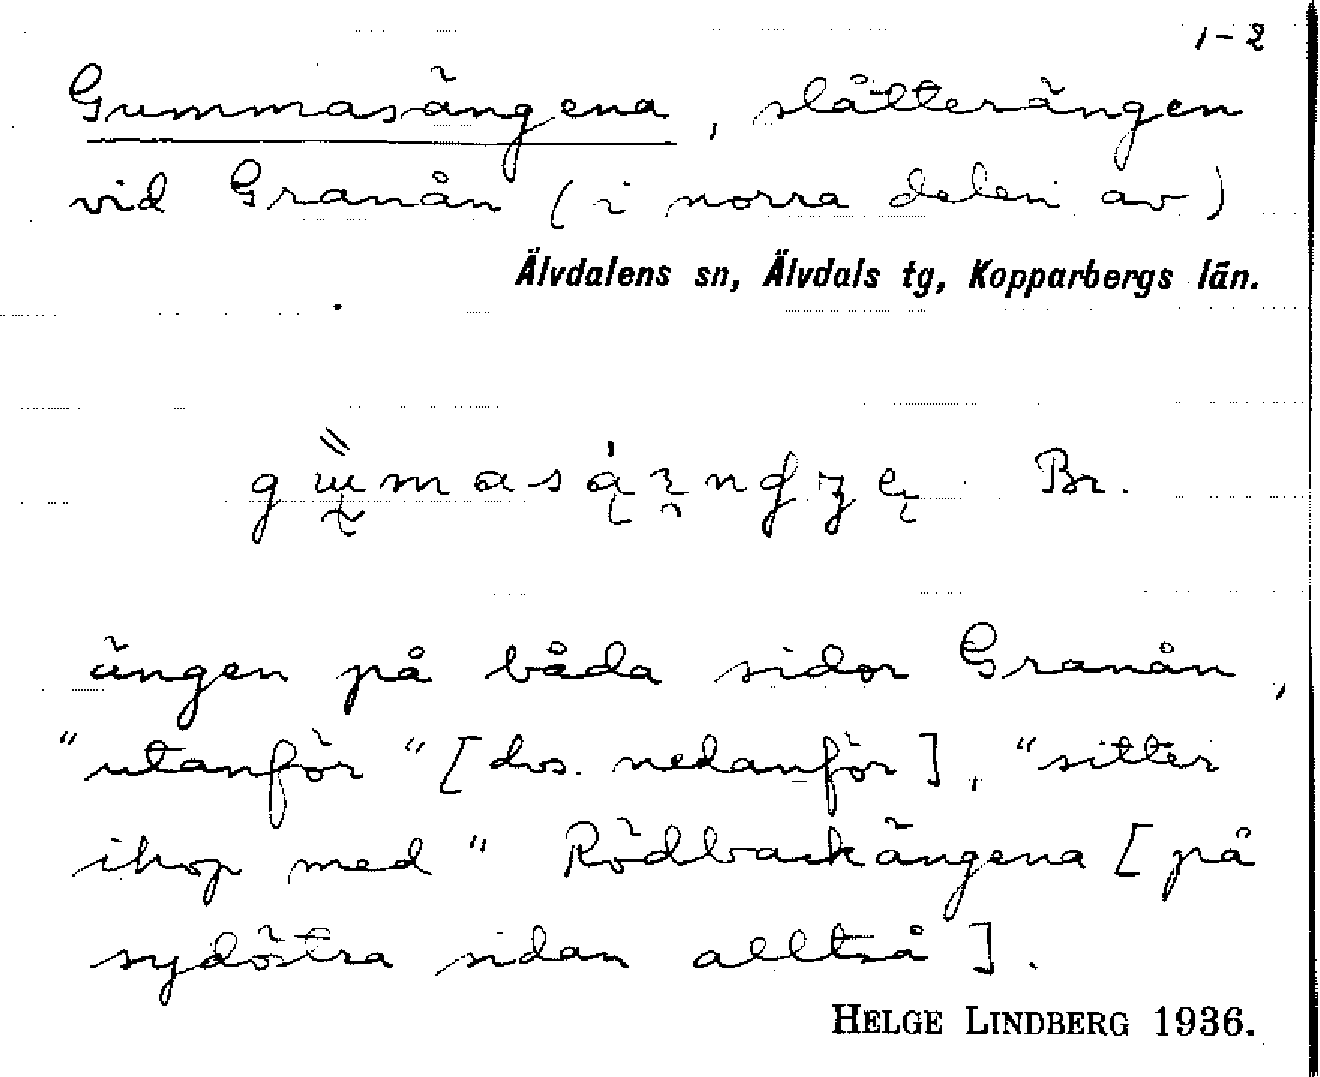 1-2
Gummasängena, slätterängen
vid Granån (i norra delen av)
Älvdalens sn, Älvdals tg, Kopparbergs län.
Br.
ängen på båda sidor Granån,
"utanför" [dvs. nedanför], "sitter
ihop med" Rödbackängena [på
sydöstra sidan alltså].
HELGE LINDBERG 1936.